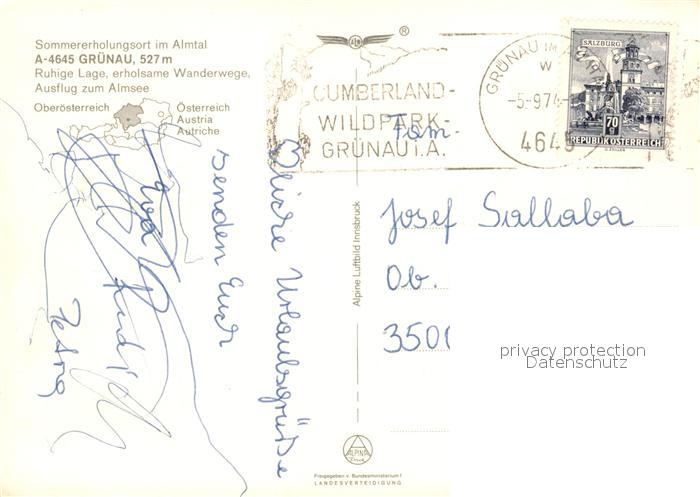 Sommererholungsort im Almtal
A-4645 GRÜNAU, 527 m
Ruhige Lage, erholsame Wanderwege,
Ausflug zum Almsee
Oberösterreich
Österreich
Austria
Autriche
®
CUMBERLAND-
WILDPARK-
GRÜNAU i.A.
GRÜNAU IM
-5.-9.74-
464
SALZBURG
70
g
REPUBLIK ÖSTERREICH
Fam.
Josef Sallaba
Ob.
350
Urlaubsgrüße
senden Euch
Eva
Rudi
Petra
Alpine Luftbild Innsbruck
ALPINE
Freigegeben v. Bundesministerium f.
LANDESVERTEIDIGUNG
privacy protection
Datenschutz